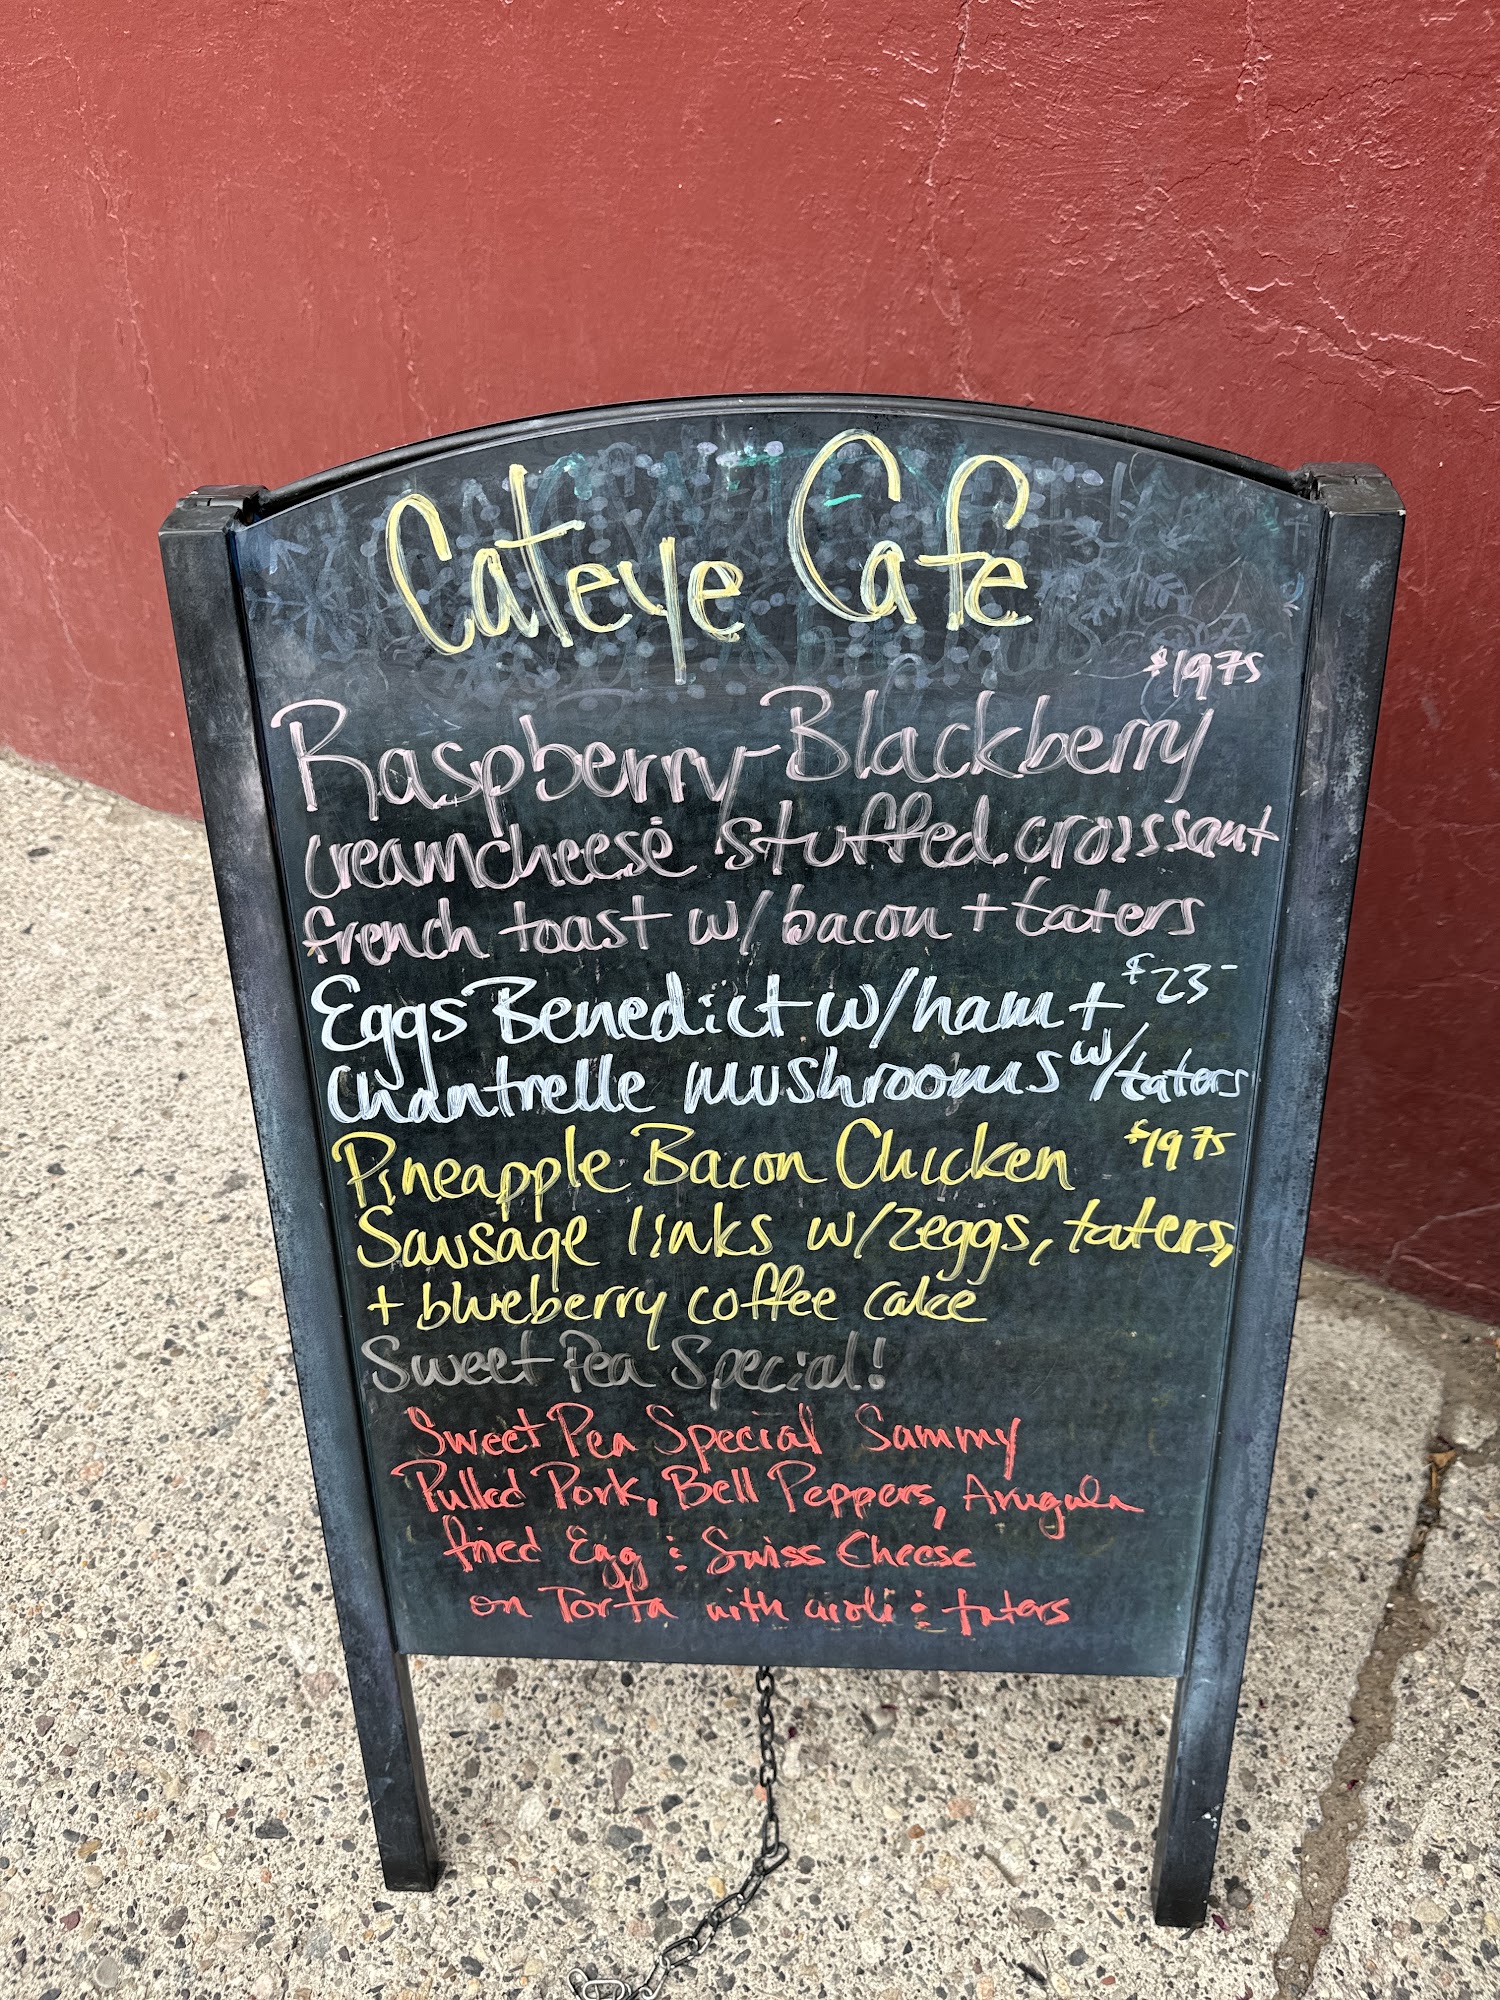 Cateye Cafe
$19.75
Raspberry-Blackberry
creamcheese stuffed croissant
french toast w/bacon + taters
Eggs Benedict w/ham + $23-
Chantrelle mushrooms w/taters
Pineapple Bacon Chicken $19.75
Sausage links w/2eggs, taters,
+ blueberry coffee cake
Sweet Pea Special!
Sweet Pea Special Sammy
Pulled Pork, Bell Peppers, Arugula
fried Egg & Swiss Cheese
on Torta with aioli & taters